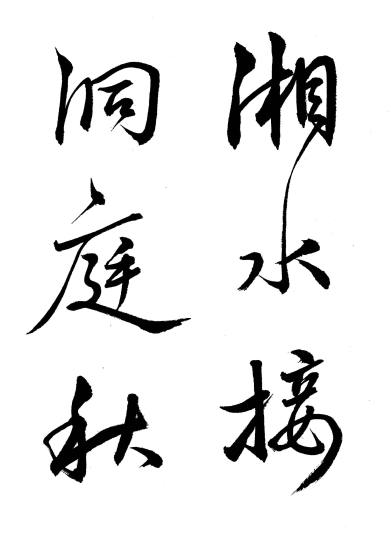 湘水接
洞庭秋